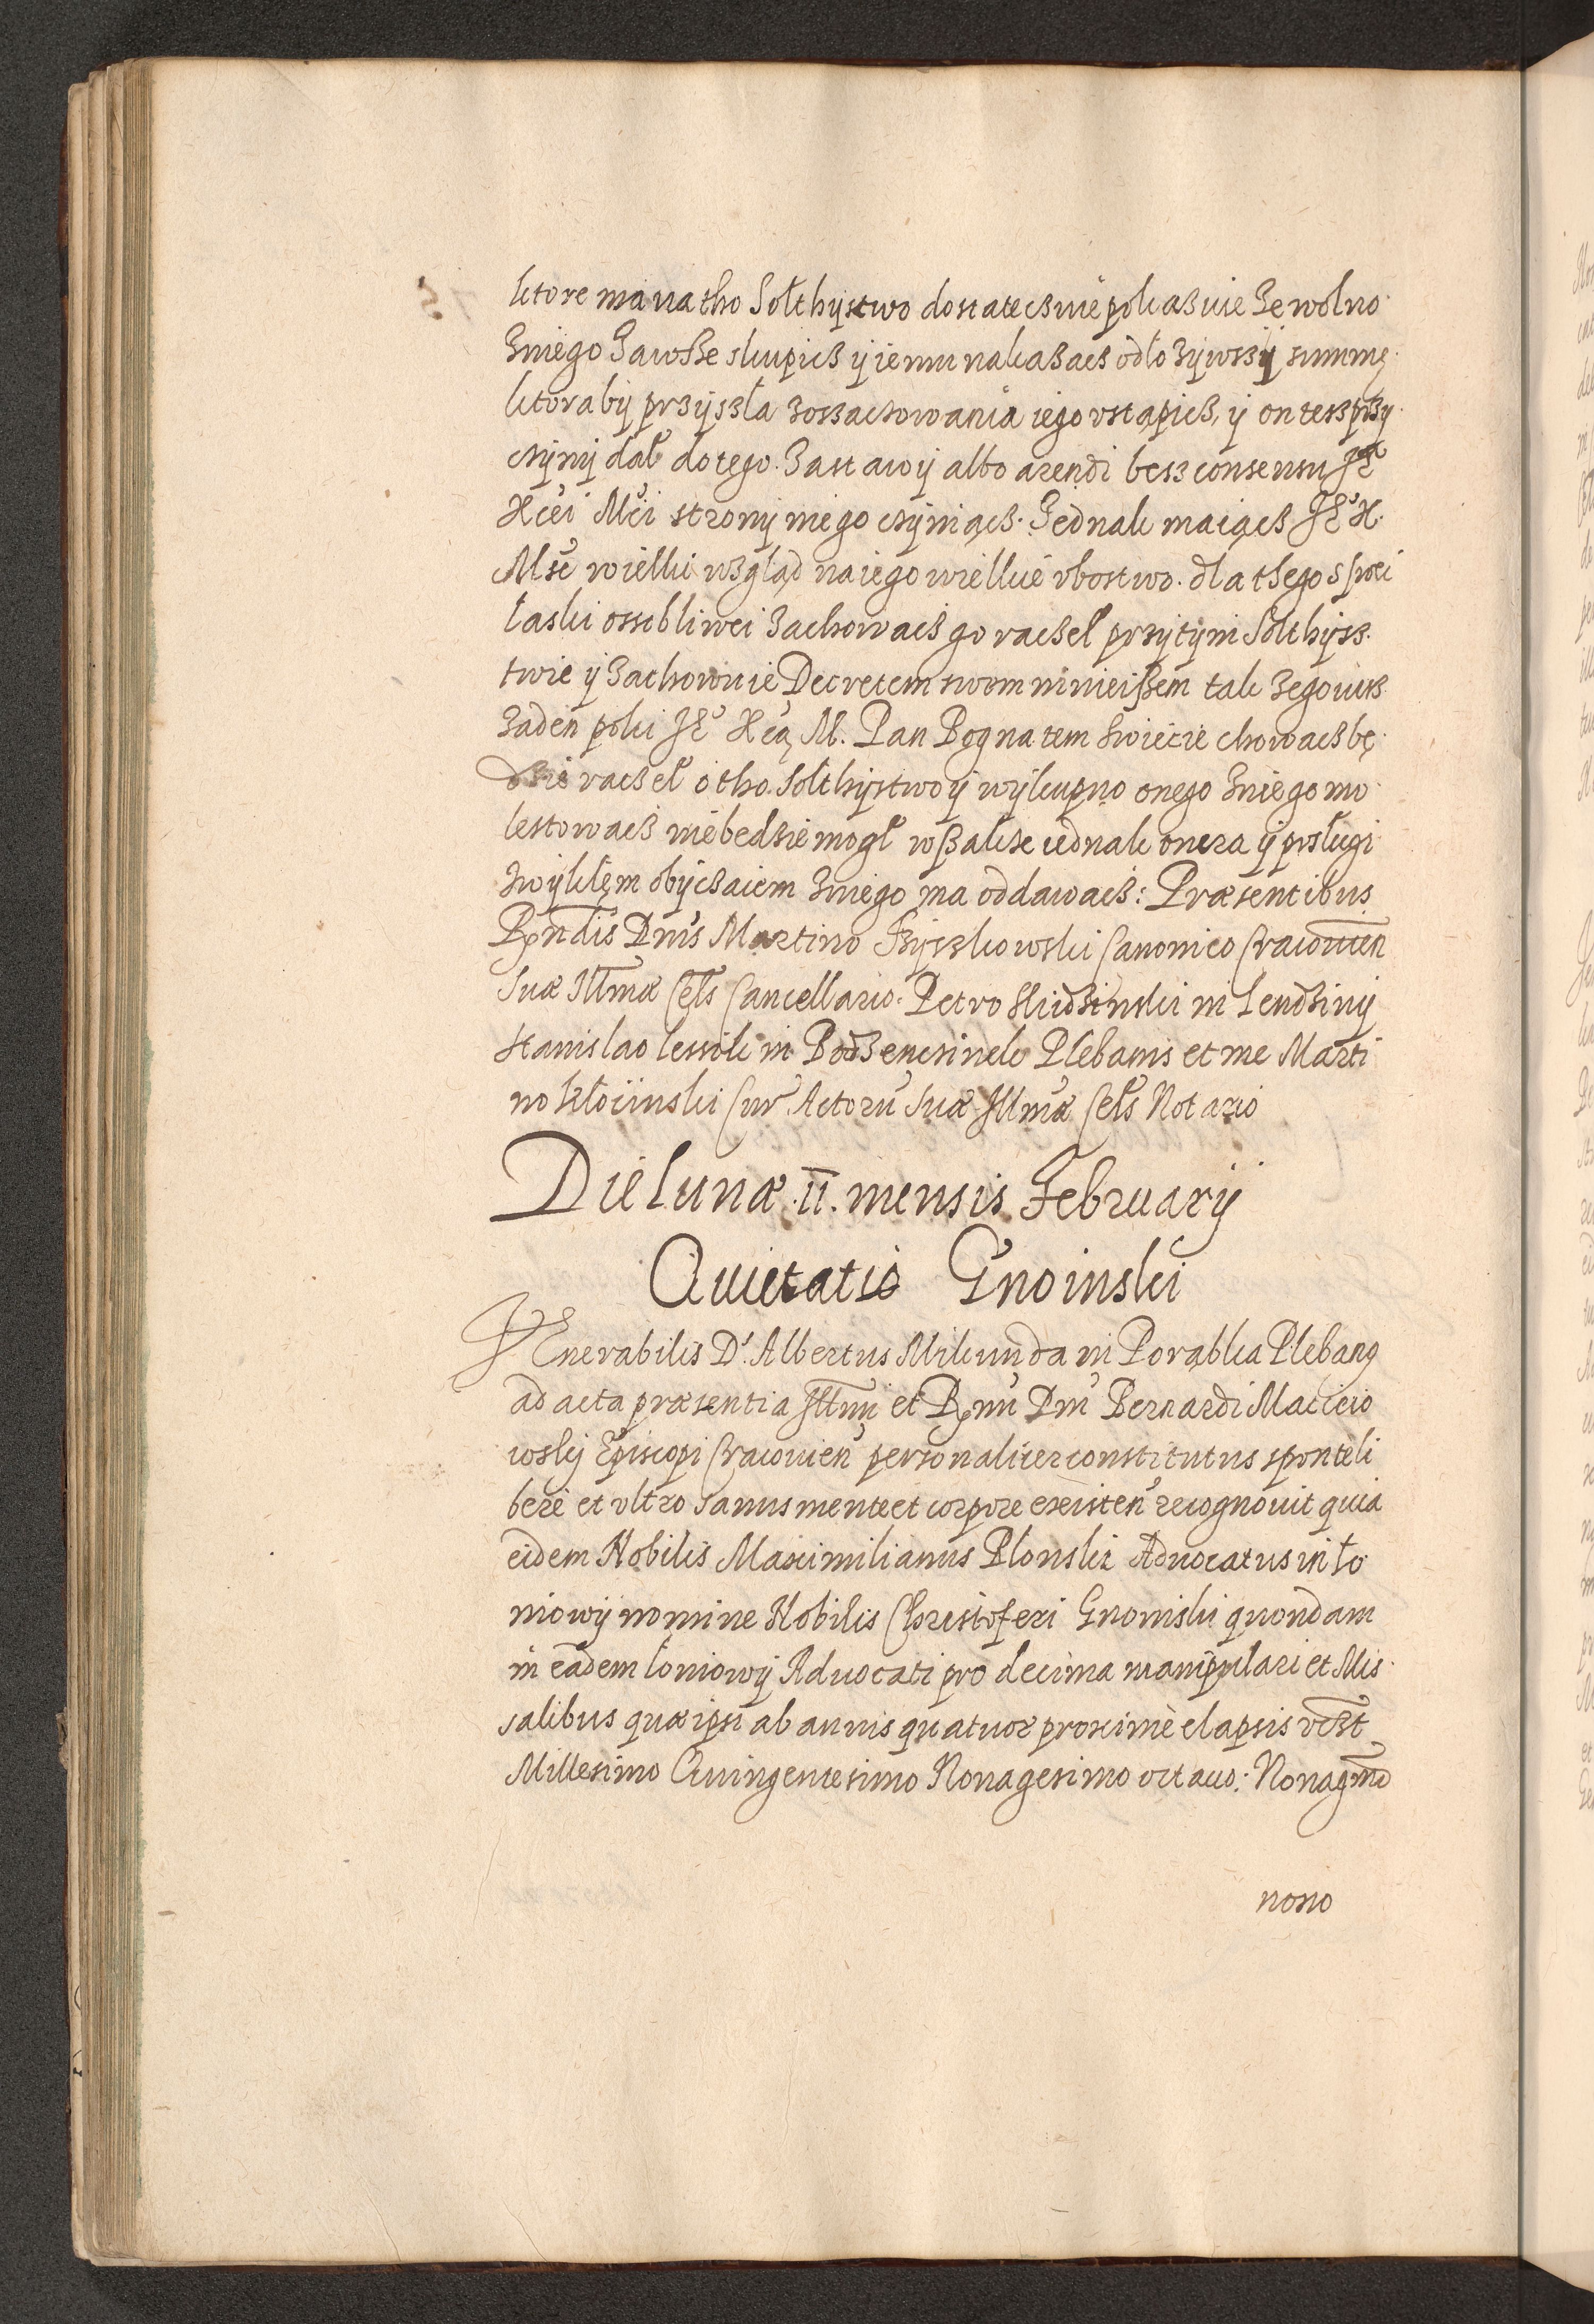 ktore ma na tho Sołthystwo dostatecznie pokazuie ze wolno
zniego zawsze skupicz y iemu nakazacz odłozywszy summę
ktoraby przyszła zoszachowania iego ustąpicz, y on tesz przy
czyny dał do tego. Zastawy albo arendi besz consensu Je°
Xcei Mci strony niego czyniącz. Jednak maiącz Je° X.
Msc wielki wzgląd na iego wielkie ubostwo. dla thego s swei
łaski ossobliwei zachowacz go raczeł przytym Sołthysz
twie y zachowuie Decretem swem ninieiszem tak ze go iusz
zaden poki Je° Xcą M. Pan Bog na tem swiecie chowacz bę
dzie raczeł o tho Sołthystwo y wykupno onego zniego mo
lestowacz niebedzie mogł wszakze iednak onera y posługi
zwykłęm obyczaiem zniego ma oddawacz: Præsentibus
Rñdis Dnis Martino Szyszkowski Canonico Cracovien
Suæ Illmæ Cels Cancellario. Petro Skidzinski in Lendziny
Stanislao Lessik in Bodzencsinek Plebanis et me Marti
no Kłocinski Cur Actorũ Suæ Illmæ Cels Notario
Die Lunæ .11. mensis February
Quietatio Gnoinski
Venerabilis D. Albertus Mikunda in Porąbka Plebang
ad acta præsentia Illmi et Rmi Dni Bernardi Macieio
wsky Episcopi Cracovien personaliter constitutus sponte li
bere et ultro sanus mente et corpore existen recognovit quia
eidem Nobilis Maximilianus Plonski Advocatus in Ło
niowy nomine Nobilis Christoferi Gnoinski quondam
in eadem Łoniowy Advocati pro decima manipulari et Mis
salibus quæ ipsi ab annis quatuor proxime elapsis vczt
Millesimo Quingentesimo Nonagesimo octauo: Nonagmo
nono